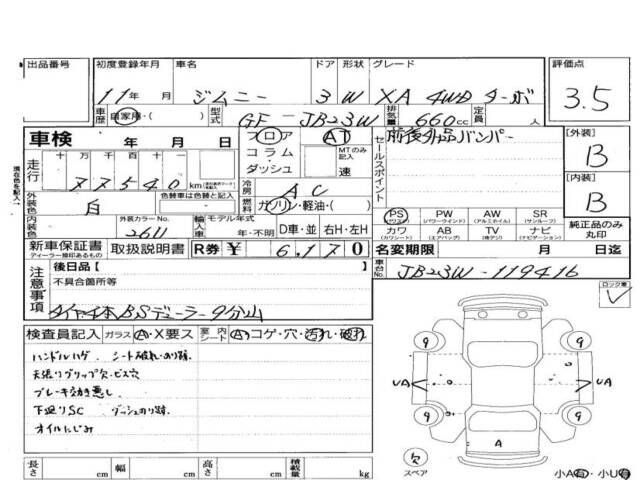 出品番号 初度登録年月 車名 ドア 形状 グレード 評価点
11年 ジムニー 3 W XA 4WD ターボ 3.5
車歴 自家用・( ) 型式 GF-JB23W 排気量 660cc 定員 人
車検 年 月 日 フロア AT セールスポイント 前後外品バンパー [外装]
コラム MTのみ記入 B
走行 十 万 千 百 十 一 ダッシュ 速
77540 km 冷房 AC [内装]
外装色 白 色替車は色と記入 燃料 ガソリン・軽油・( ) B
PS PW AW SR
(パワステ) (パワーウインド) (アルミホイル) (サンルーフ)
内装色 外装カラーNo. 2611 輸入車 モデル年式 年・不明 D車・並 右H・左H カワ AB TV ナビ 純正品のみ丸印
(カワシート) (エアバッグ) (地デジ) (ナビゲーション)
新車保証書 取扱説明書 R券 ¥ 6,170 名変期限 月 日迄
ディーラー捺印あるもの
注意事項 後日品[ ] 車台No. JB23W-119416
不具合箇所等 ロック車
タイヤ4本BSデューラー9分山
検査員記入 ガラス A・X要ス 室内 シート A コゲ・穴・汚れ・破れ
ハンドルハゲ. シート破れ・のり跡.
天張りグリップ欠・ビス穴
ブレーキ効き悪し
下廻りSC ダッシュのり跡.
オイルにじみ
9 9
UA UA
9 9
A
欠
スペア 小A有・小U有
長さ cm 幅 cm 高さ cm 積載量 kg